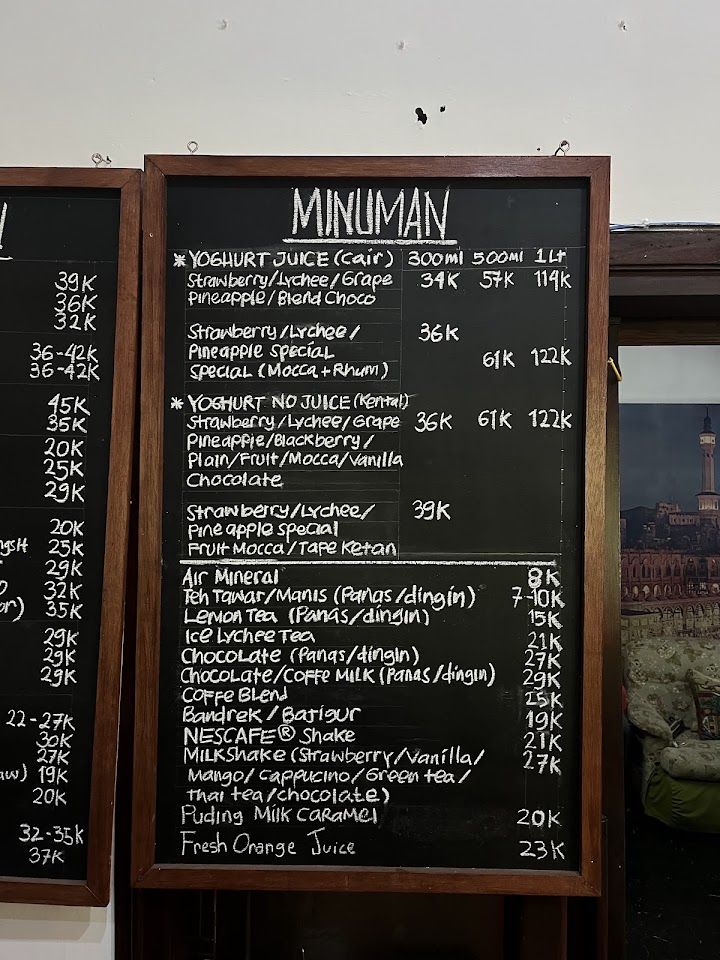 39K
36K
32K
36-42K
36-42K
45K
35K
20K
25K
29K
20K
25K
29K
32K
35K
29K
29K
29K
22-27K
30K
27K
19K
20K
32-35K
37K
MINUMAN
* YOGHURT JUICE (Cair) 300ml 500ml 1Lt
Strawberry/Lychee/Grape 34K 57K 114K
Pineapple/Blend Choco
Strawberry/Lychee/ 36K
Pineapple Special 61K 122K
Special (Mocca+Rhum)
* YOGHURT NO JUICE (Kental)
Strawberry/Lychee/Grape 36K 61K 122K
Pineapple/Blackberry/
Plain/Fruit/Mocca/Vanilla
Chocolate
Strawberry/Lychee/ 39K
Pineapple Special
Fruit Mocca/Tape Ketan
Air Mineral 8K
Teh Tawar/Manis (Panas/dingin) 7-10K
Lemon Tea (Panas/dingin) 15K
Ice Lychee Tea 21K
Chocolate (Panas/dingin) 27K
Chocolate/Coffe Milk (Panas/dingin) 29K
Coffe Blend 25K
Bandrek/Bajigur 19K
NESCAFE® Shake 21K
Milkshake (Strawberry/Vanilla/ 27K
Mango/Cappucino/Green tea/
Thai tea/chocolate)
Puding Milk Caramel 20K
Fresh Orange Juice 23K